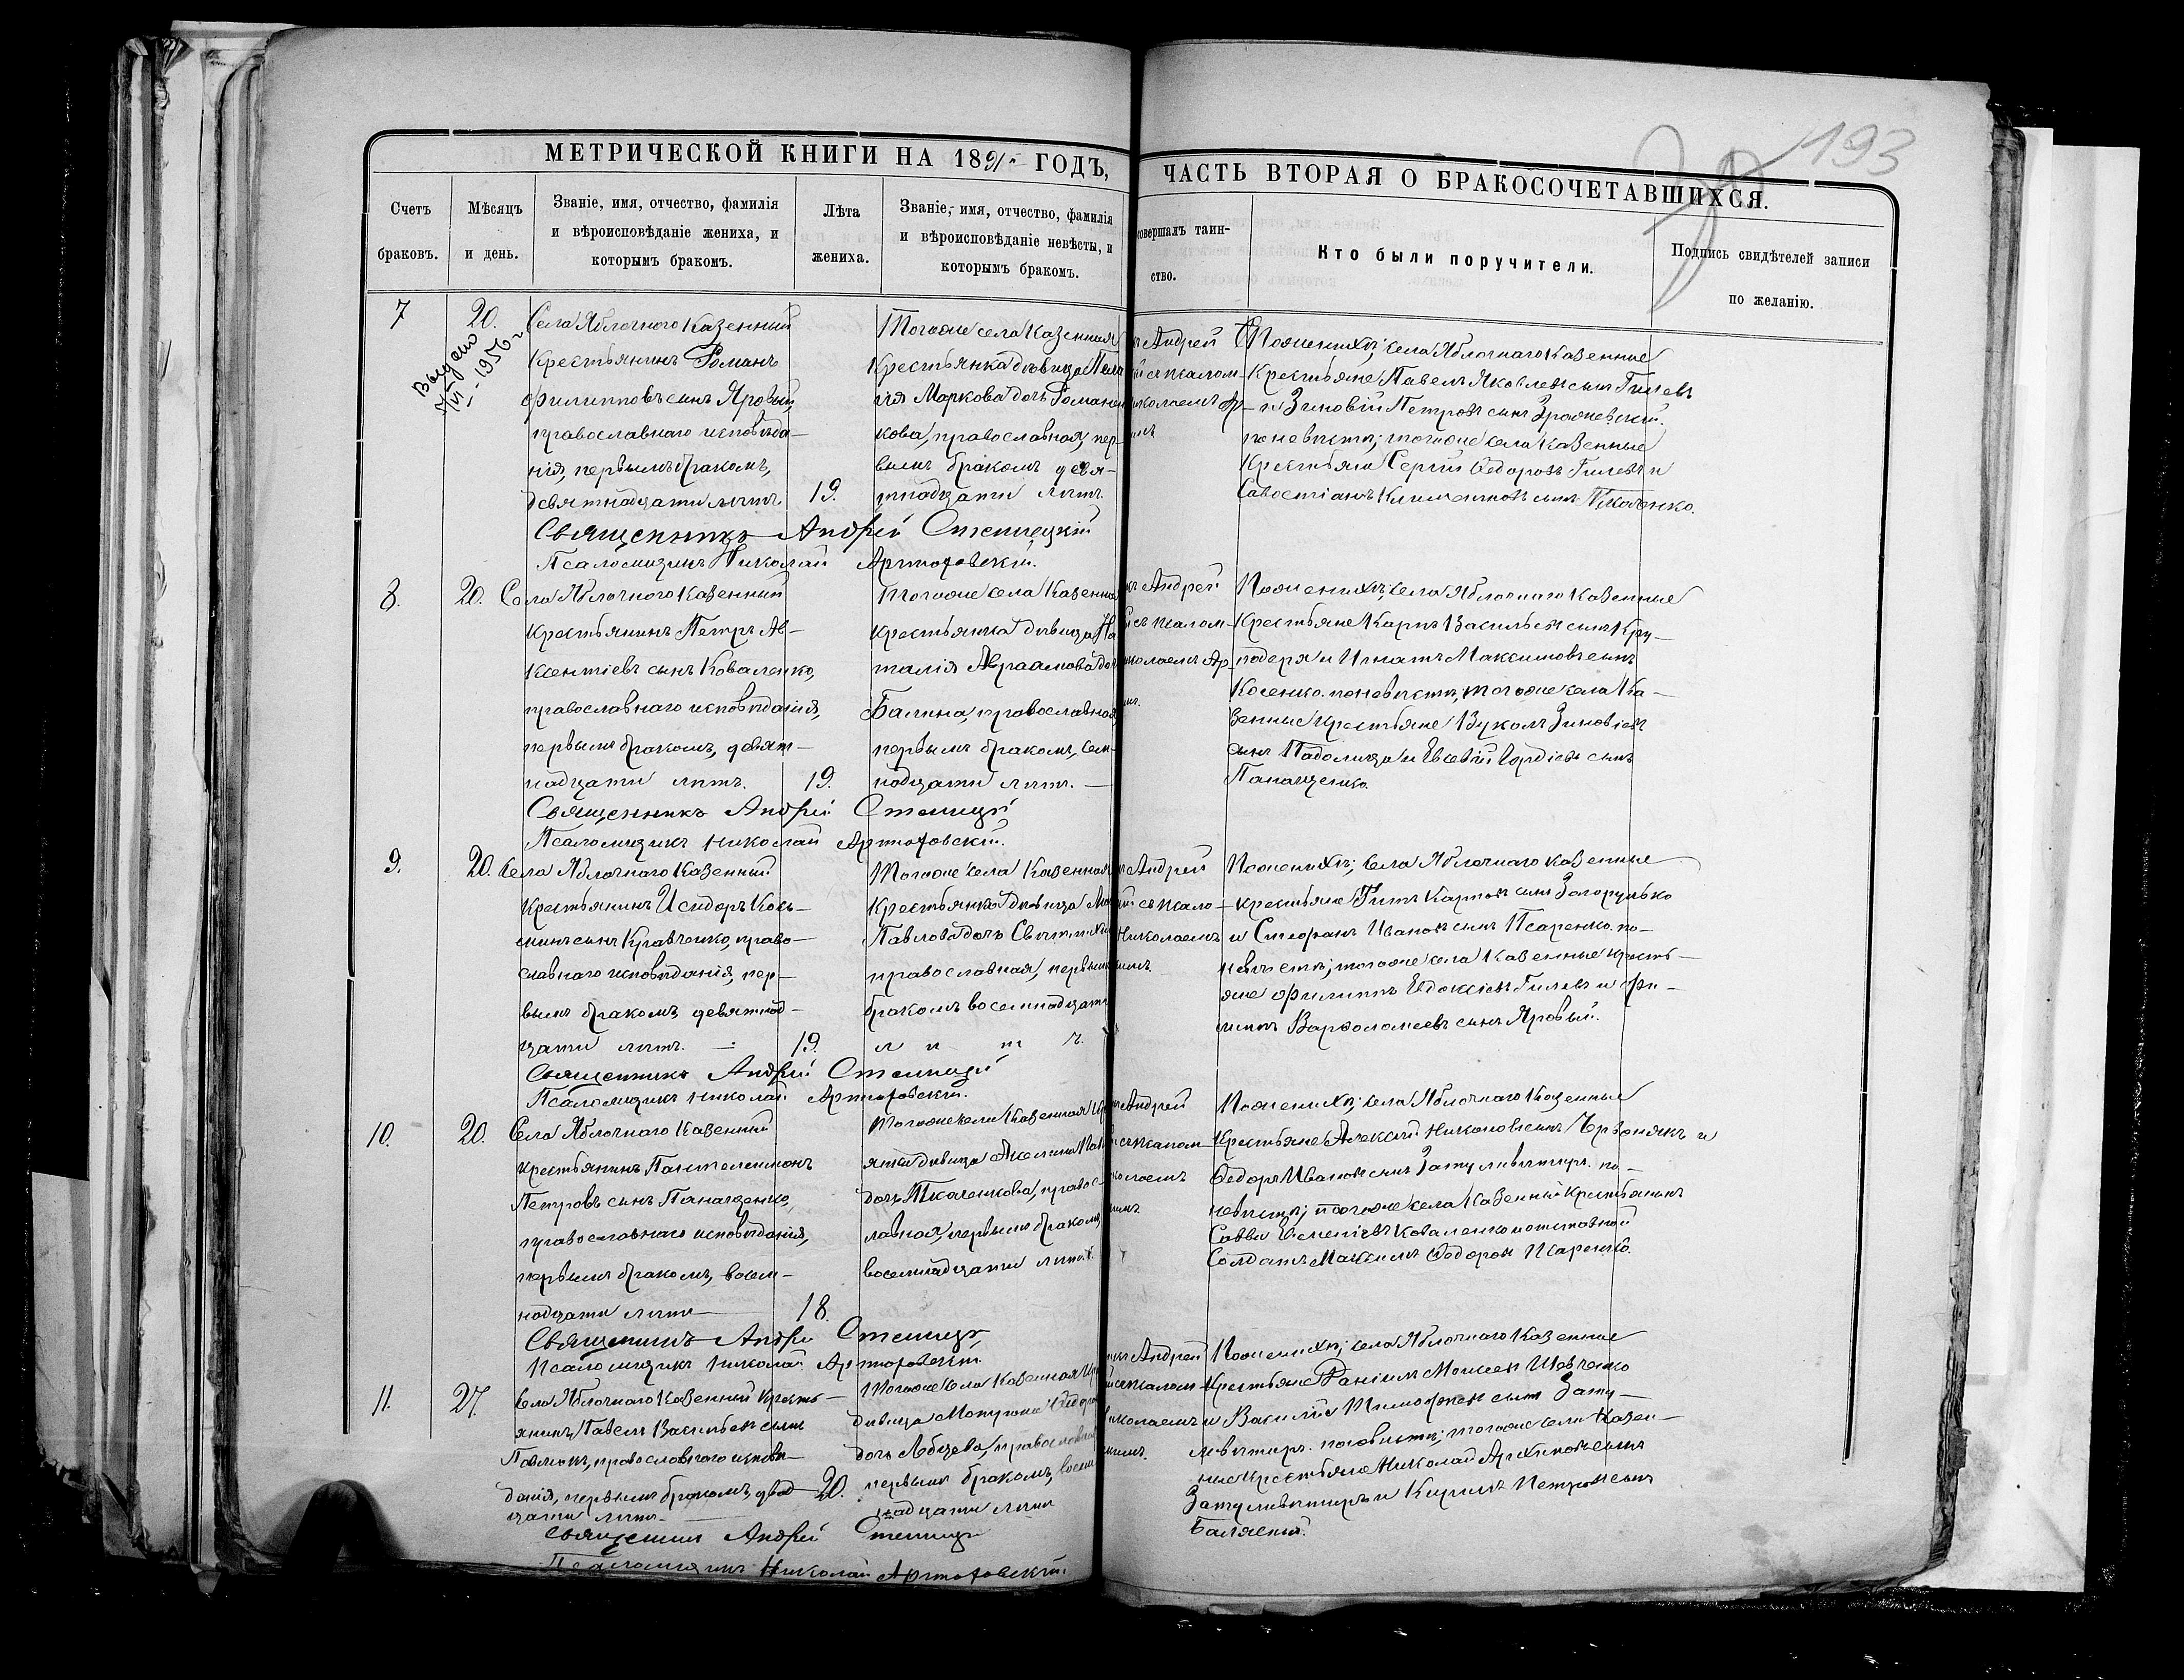 193
МЕТРИЧЕСКОЙ КНИГИ НА 1891 ГОДЪ,
ЧАСТЬ ВТОРАЯ О БРАКОСОЧЕТАВШИХСЯ.
Счетъ браковъ.
Мѣсяцъ и день.
Званіе, имя, отчество, фамилія
и вѣроисповѣданіе жениха, и
которымъ бракомъ.
Лѣта жениха.
Званіе, имя, отчество, фамилія
и вѣроисповѣданіе невѣсты, и
которымъ бракомъ.
совершалъ таин-
ство.
Кто были поручители.
Подпись свидѣтелей записи
по желанію.
7
20.
Выдано
7/VI-1956 г
Села Яблочного Казенный
крестьянинъ Романъ
Филипповъ сынъ Яровый,
православнаго исповѣда-
нія, первымъ бракомъ,
девятнадцати лѣтъ
19.
Тогоже села Казенная
крестьянка дѣвица Пела
гія Маркова дочь Романен
кова, православная, пер-
вымъ бракомъ девя-
тнадцати лѣтъ
Андрей
псалом-
колаемъ Ар-
Пожениху; села Яблочнаго Казенные
Крестьяне Павелъ Яковлевъ сынъ Гилевъ
и Зиновій Петровъ сынъ
по невѣсте; тогоже села Казенные
Крестьяне Сергій Ѳедоровъ Гилевъ и
Савостіанъ Климентовъ сынъ Ткаченко.
Священникъ Андрей
Псаломщикъ Николай Артюховскій.
8.
20.
Села Яблочного Казенный
крестьянинъ Петръ Ав-
ксентіевъ сынъ Коваленко,
православнаго исповѣданія,
первымъ бракомъ, девят-
надцати лѣтъ.
19.
Тогоже села Казенная
крестьянка дѣвица На
талія Авраамова дочь
Балина, православная
первымъ бракомъ, сем-
надцати лѣтъ. —
Андрей
съ псалом-
колаемъ Ар-
Пожениху; села Яблочнаго Казенные
Крестьяне Карпъ Васильевъ сынъ Кру-
подеря и Игнатъ Максимовъ сынъ
Косенко. поневѣсте, тогоже села Ка-
зенные крестьяне Вуколъ Зиновіевъ
сынъ Падолица и Евсевій Гордіевъ сынъ
Панащенко.
Священникъ Андрей
Псаломщикъ Николай Артюховскій.
9.
20.
Села Яблочнаго Казенный
крестьянинъ Исидоръ Кось-
минъ сынъ Кравченко, право-
славнаго исповѣданія, пер-
вымъ бракомъ, девятнад-
цати лѣтъ. —
19.
Тогоже села Казенная
крестьянка дѣвица
Павлова дочь
православная, первымъ
бракомъ восемнадцати
лѣтъ.
Андрей
съ псало-
Николаемъ
Пожениху; села Яблочнаго казенные
крестьяне Титъ Карповъ сынъ Загорулько
и Стефанъ Ивановъ сынъ Псаренко. по-
невѣсте; тогоже села Казенные кресть-
яне Филиппъ Евдокіевъ Гилевъ и Фи-
липпъ Варѳоломеевъ сынъ Яровый.
Священникъ Андрей
Псаломщикъ Николай Артюховскій.
10.
20.
Села Яблочнаго Казенный
крестьянинъ Пантелеимонъ
Петровъ сынъ Панащенко,
православнаго исповѣданія,
первымъ бракомъ, восем-
надцати лѣтъ
18.
Тогоже села Казенная
дѣвица Акелина
дочь Ткаченкова, правос-
лавная, первымъ бракомъ
восемнадцати лѣтъ.
Андрей
псалом-
колаемъ
Пожениху; села Яблочнаго Казенные
Крестьяне Алексій Никоновъ сынъ Червонякъ и
Ѳедоръ Ивановъ сынъ Затуливѣтеръ. по-
невѣсте; тогоже села Казенный Крестьянинъ
Савва Коваленко и отставной
Солдатъ Максимъ Ѳедоровъ Псаренко.
Священникъ Андрей
Псаломщикъ Николай Артюховскій
11.
27.
Села Яблочнаго Казенный кресть-
янинъ Павелъ Васильевъ сынъ
православнаго исповѣ-
данія, первымъ бракомъ, двад-
цати лѣтъ
20.
Тогоже села Казенная
дѣвица Ѳедор
дочь православная
первымъ бракомъ, восем
надцати лѣтъ
Андрей
псалом-
колаемъ
Пожениху; села Яблочнаго Казенные
Крестьяне Даніилъ Шевченко
и Василій Тимофеевъ сынъ Зату-
ливѣтеръ. поневѣсте; тогоже села Казен-
ные Крестьяне Николай Архиповъ сынъ
Затуливѣтеръ и Кирилъ Петровъ сынъ
Священникъ Андрей
Псаломщикъ Николай Артюховскій.